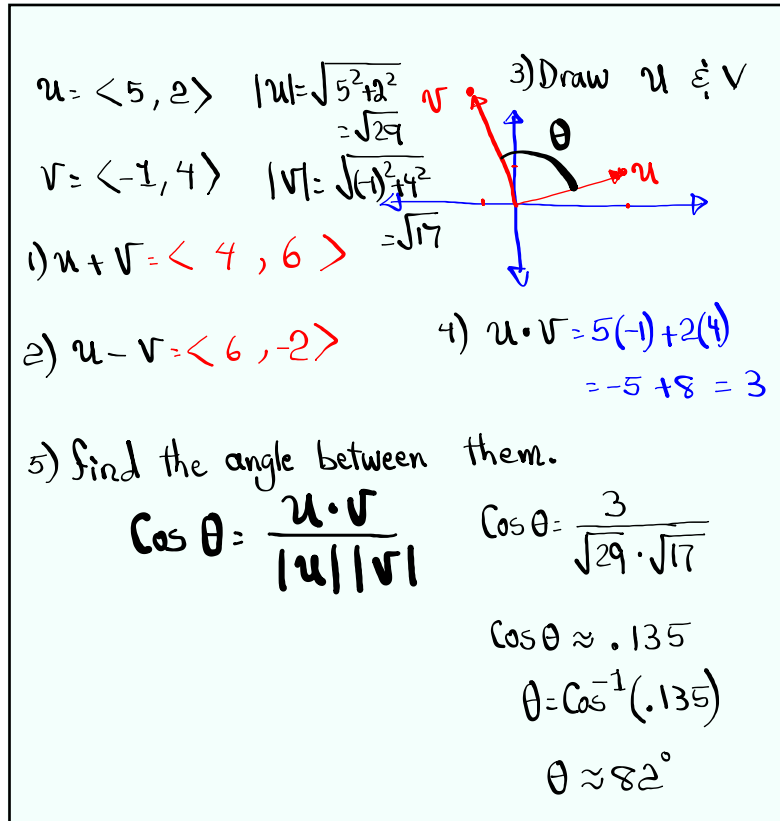 u = <5, 2> |u| = √(5²+2²)
= √29
3) Draw u & v
v θ u
v = <-1, 4> |v| = √((-1)²+4²)
= √17
1) u + v = < 4 , 6 >
2) u - v = < 6 , -2 >
4) u · v = 5(-1) + 2(4)
= -5 + 8 = 3
5) find the angle between them.
Cos θ = u · v / |u| |v|
Cos θ = 3 / √29 · √17
Cos θ ≈ .135
θ = Cos⁻¹(.135)
θ ≈ 82°